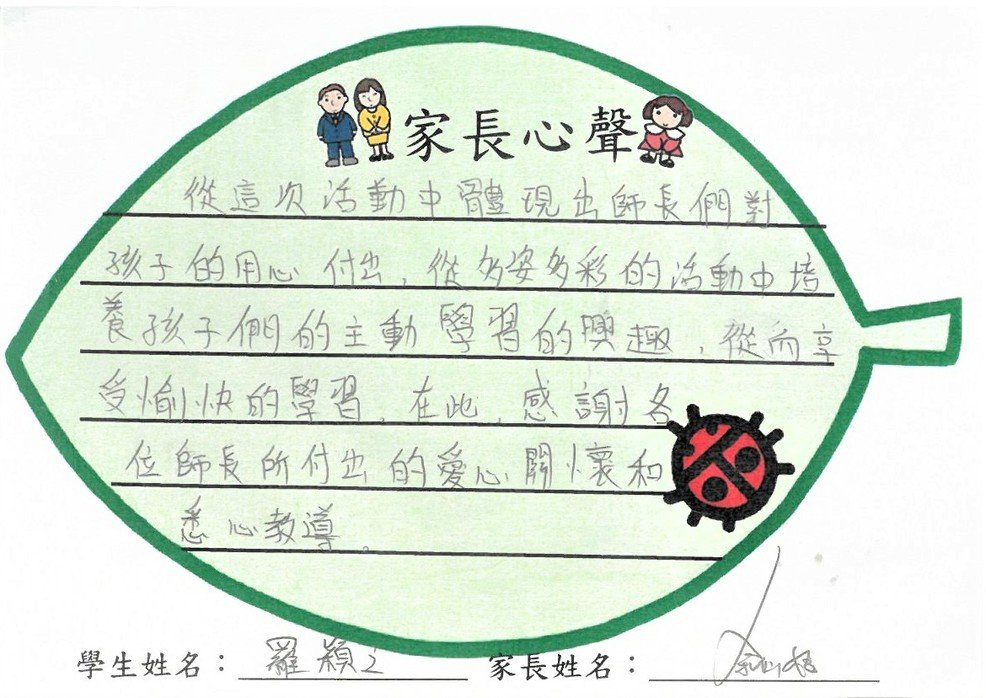 家長心聲
從這次活動中體現出師長們對
孩子的用心付出,從多姿多彩的活動中培
養孩子們的主動學習的興趣,從而享
受愉快的學習,在此,感謝各
位師長所付出的愛心關懷和
悉心教導。
學生姓名：羅穎之 家長姓名：